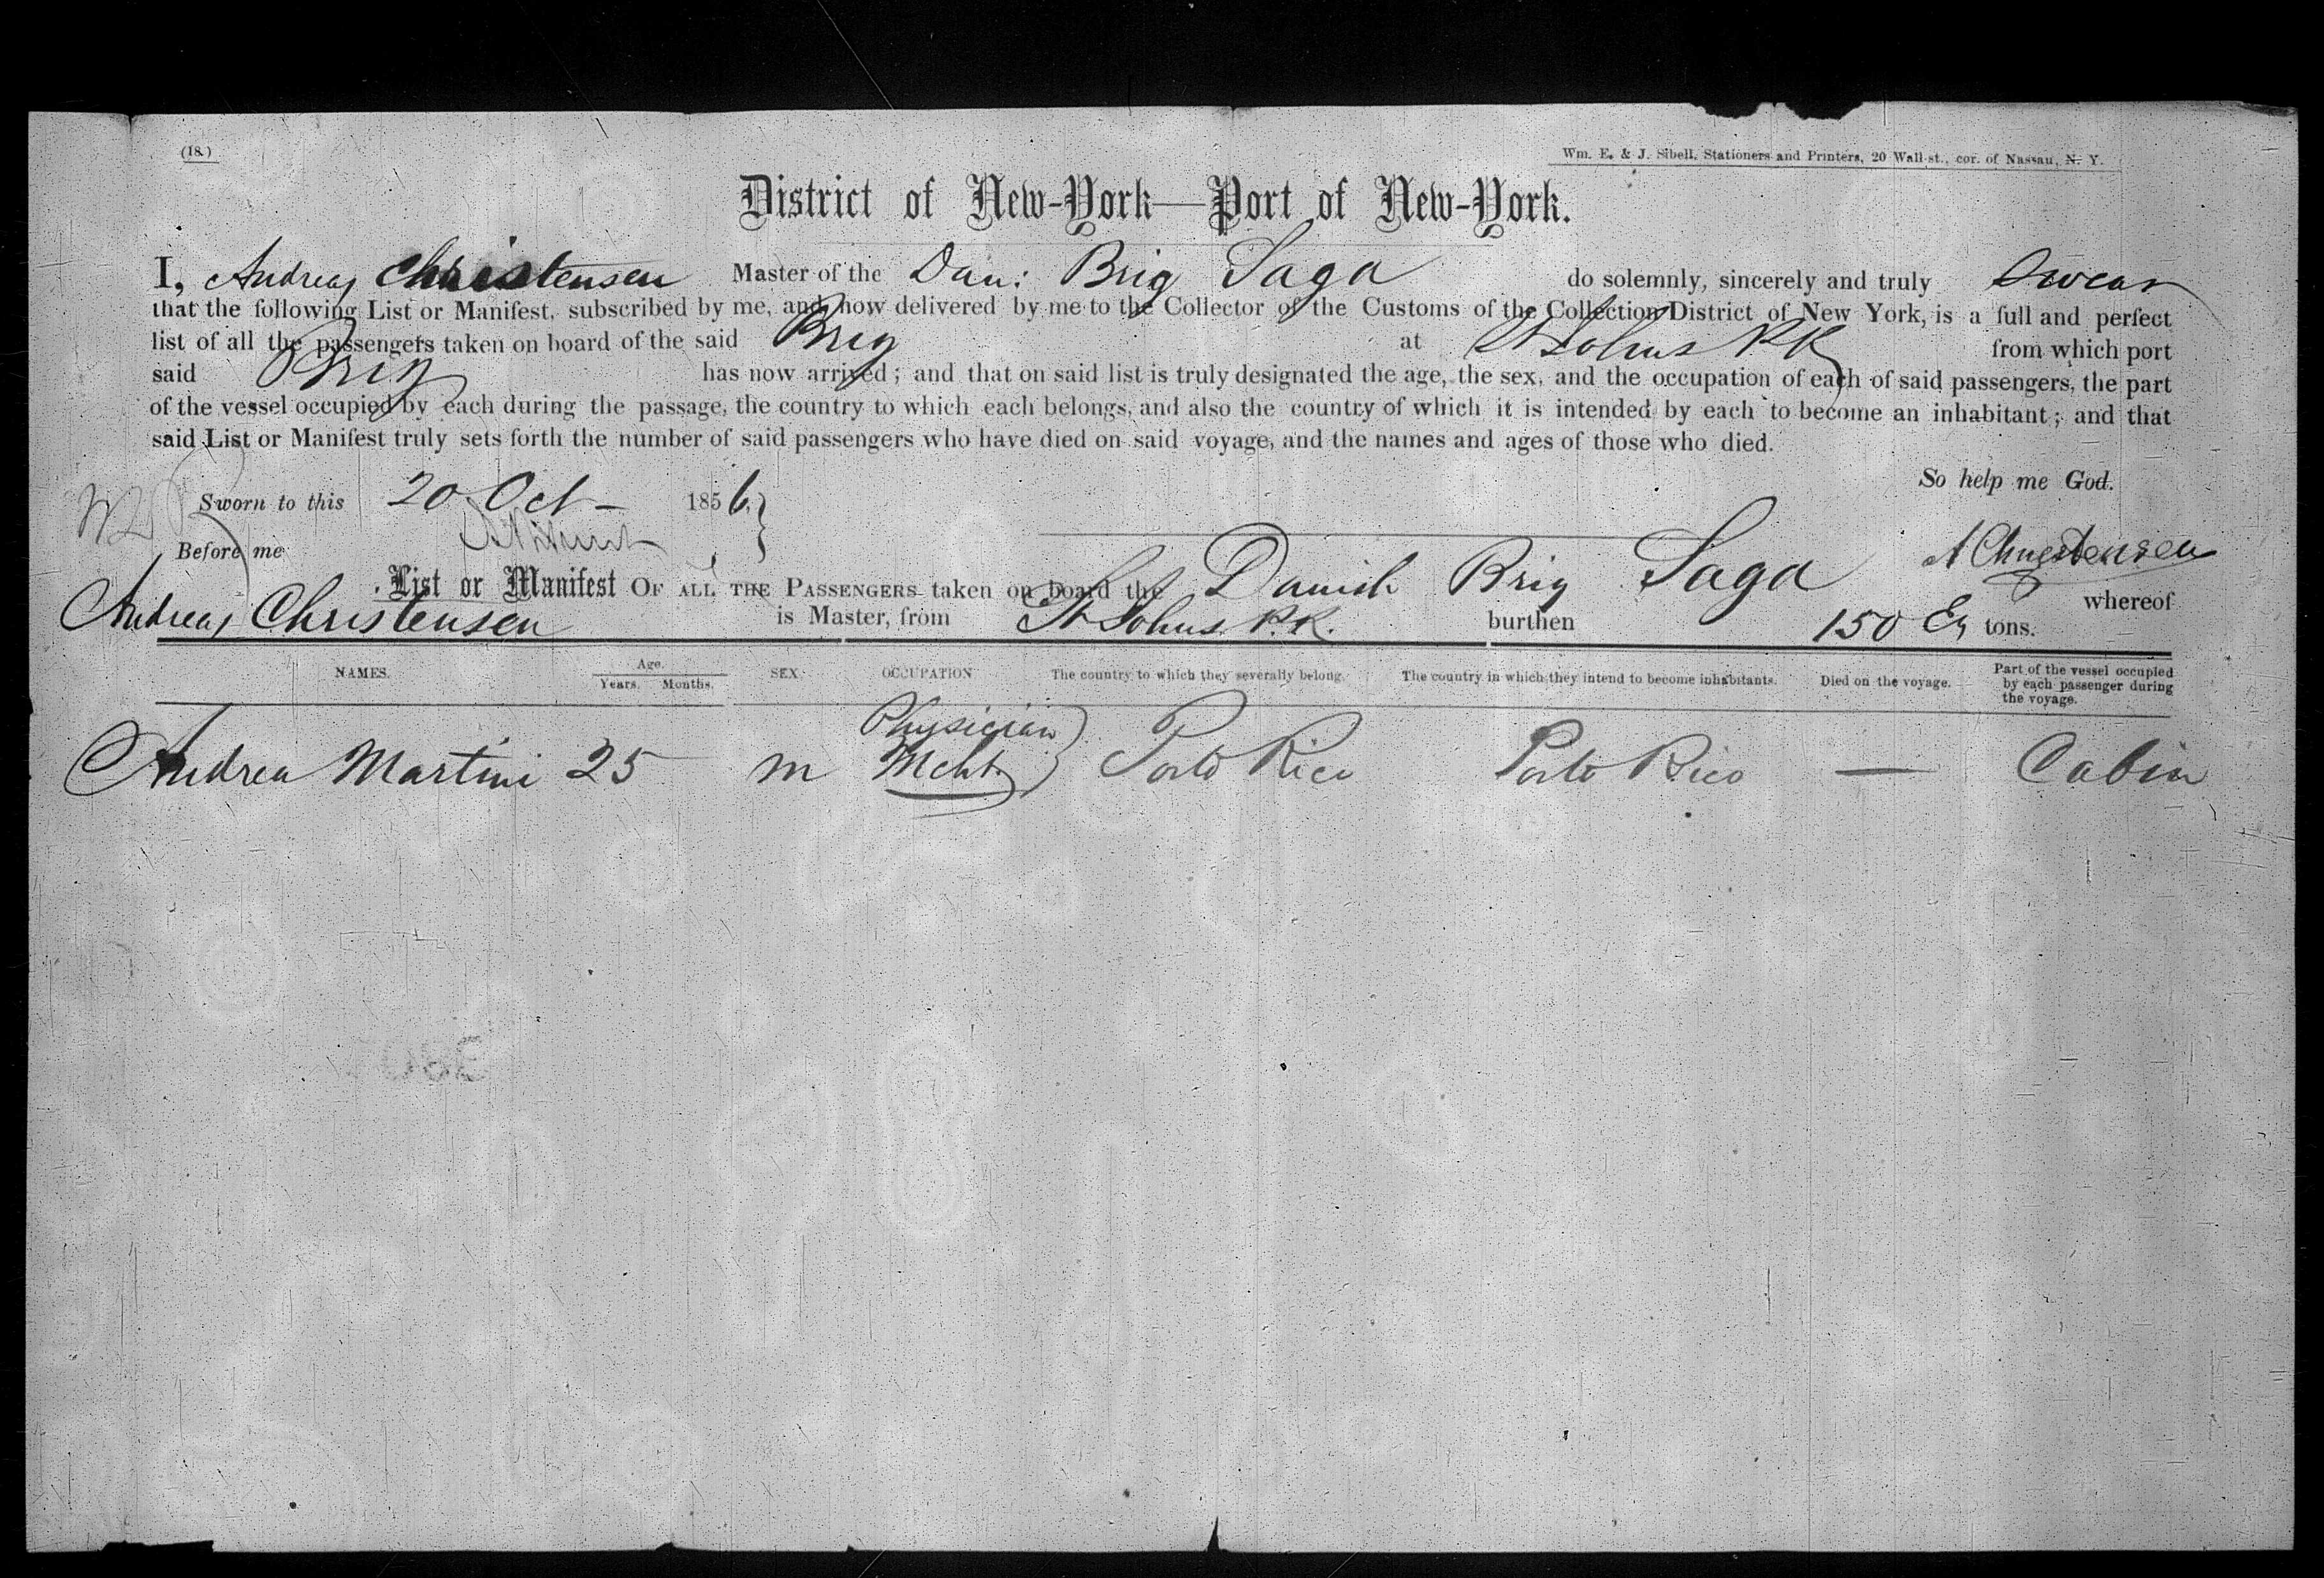 (18.)
Wm. E. & J. Sibell, Stationers and Printers, 20 Wall-st., cor. of Nassau, N. Y.
District of New-York—Port of New-York.
I, Andreas Christensen Master of the Dan: Brig Saga do solemnly, sincerely and truly Swear
that the following List or Manifest, subscribed by me, and now delivered by me to the Collector of the Customs of the Collection District of New York, is a full and perfect
list of all the passengers taken on board of the said Brig at St Johns P.R. from which port
said Brig has now arrived; and that on said list is truly designated the age, the sex, and the occupation of each of said passengers, the part
of the vessel occupied by each during the passage, the country to which each belongs, and also the country of which it is intended by each to become an inhabitant; and that
said List or Manifest truly sets forth the number of said passengers who have died on said voyage, and the names and ages of those who died.
So help me God.
Sworn to this 20 Oct 1856
Before me
A Christensen
List or Manifest OF ALL THE PASSENGERS taken on board the Danish Brig Saga whereof
Andreas Christensen is Master, from St Johns P.R. burthen 150 tons.
NAMES. Age. Years. Months. SEX. OCCUPATION The country to which they severally belong. The country in which they intend to become inhabitants. Died on the voyage. Part of the vessel occupied by each passenger during the voyage.
Physician
Andrea Martini 25 m Mcht Porto Rico Porto Rico — Cabin